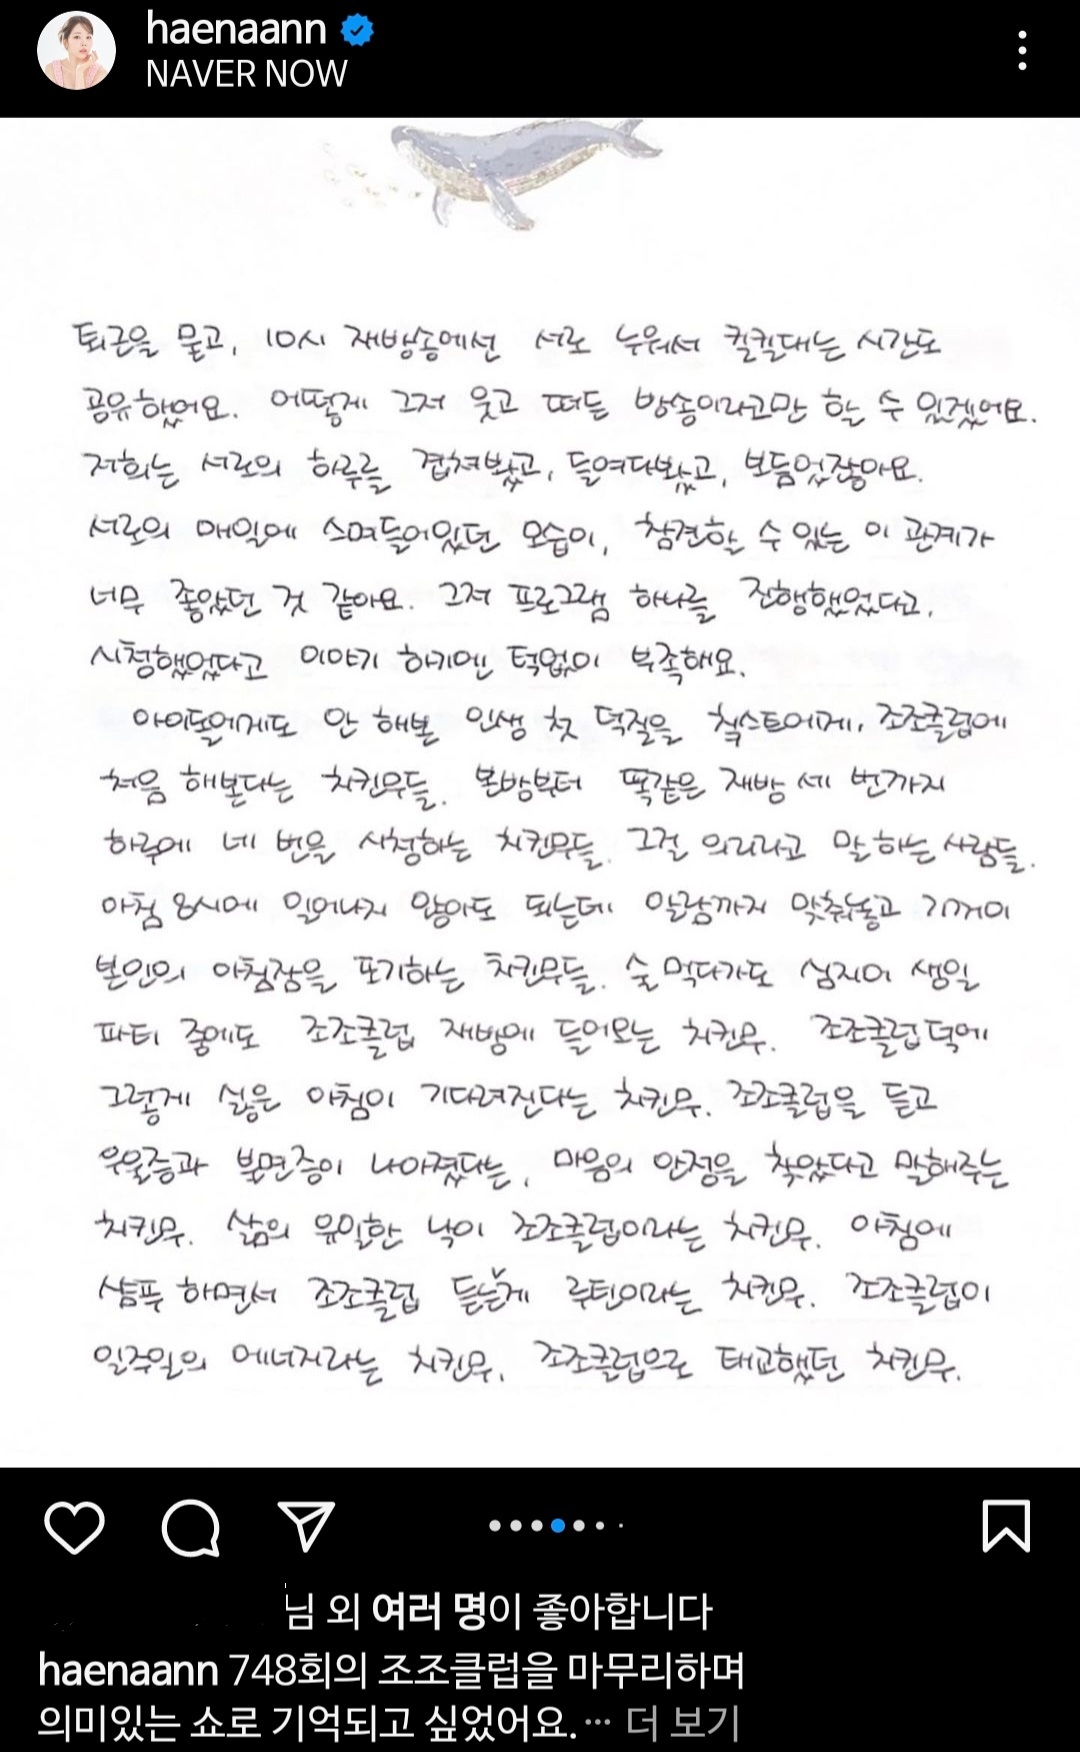 haenaann
NAVER NOW
퇴근을 묻고, 10시 재방송에선 서로 누워서 킬킬대는 시간도
공유했어요. 어떻게 그저 웃고 떠든 방송이라고만 할 수 있겠어요.
저희는 서로의 하루를 겹쳐봤고, 들여다봤고, 보듬었잖아요.
서로의 매일에 스며들어있던 모습이, 참견할 수 있는 이 관계가
너무 좋았던 것 같아요. 그저 프로그램 하나를 진행했었다고,
시청했었다고 이야기 하기엔 턱없이 부족해요.
아이돌에게도 안 해본 인생 첫 덕질을 책스트에게, 조조클럽에
처음 해본다는 치킨무들. 본방부터 똑같은 재방 세 번까지
하루에 네 번을 시청하는 치킨무들. 그걸 의리라고 말하는 사람들.
아침 8시에 일어나지 않아도 되는데 알람까지 맞춰놓고 기꺼이
본인의 아침잠을 포기하는 치킨무들. 술 먹다가도 심지어 생일
파티 중에도 조조클럽 재방에 들어오는 치킨무. 조조클럽덕에
그렇게 싫은 아침이 기다려진다는 치킨무. 조조클럽을 듣고
우울증과 불면증이 나아졌다는, 마음의 안정을 찾았다고 말해주는
치킨무. 삶의 유일한 낙이 조조클럽이라는 치킨무. 아침에
샴푸 하면서 조조클럽 듣는게 루틴이라는 치킨무. 조조클럽이
일주일의 에너지라는 치킨무. 조조클럽으로 태교했던 치킨무.
님 외 여러 명이 좋아합니다
haenaann 748회의 조조클럽을 마무리하며
의미있는 쇼로 기억되고 싶었어요.··· 더 보기